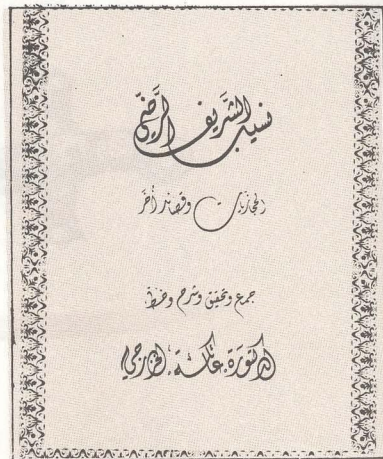 نسيب الشَّريف الرَّضيّ
الحجازيات وقصائد أُخَر
جمع وتحقيق وشرح وخط
الدكتورة عاتكة الخزرجي